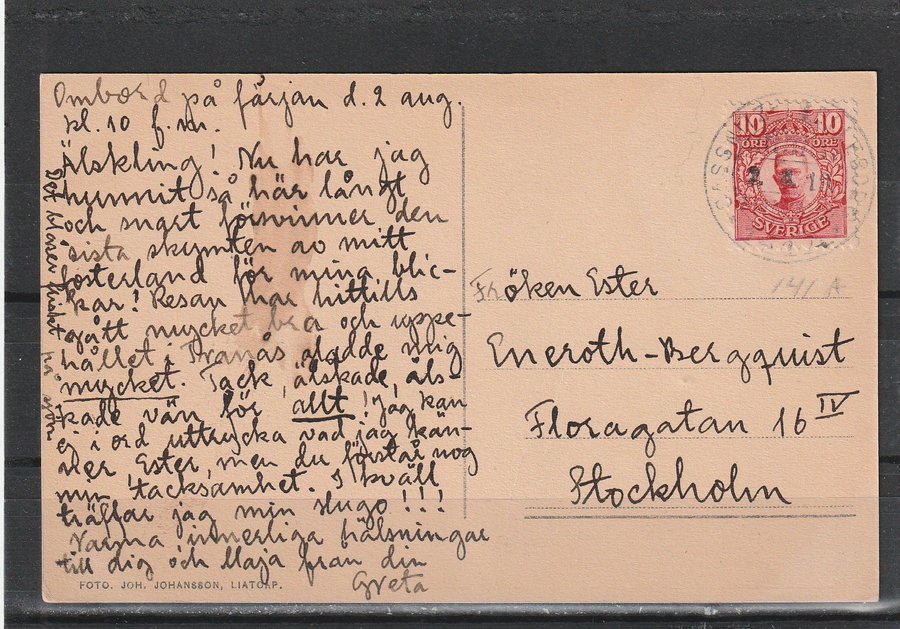 Ombord på färjan d. 2 aug.
kl. 10 f.m.
Älskling! Nu har jag
hunnit så här långt
och snart försvinner den
sista skymten av mitt
fosterland för mina blic-
kar! Resan har hittills
gått mycket bra och uppe-
hållet i Tranås gladde mig
mycket. Tack, älskade, äls-
kade vän för allt! Jag kan
ej i ord uttrycka vad jag kän-
ner Ester, men du förstår nog
min tacksamhet. I kväll
träffar jag min Hugo!!!
Varma innerliga hälsningar
till dig och Maja från din
Greta
Det blåser friskt på sjön
FOTO. JOH. JOHANSSON, LIATORP.
10 10
ÖRE ÖRE
SVERIGE
141 A
Fröken Ester
Eneroth-Bergquist
Floragatan 16 IV
Stockholm